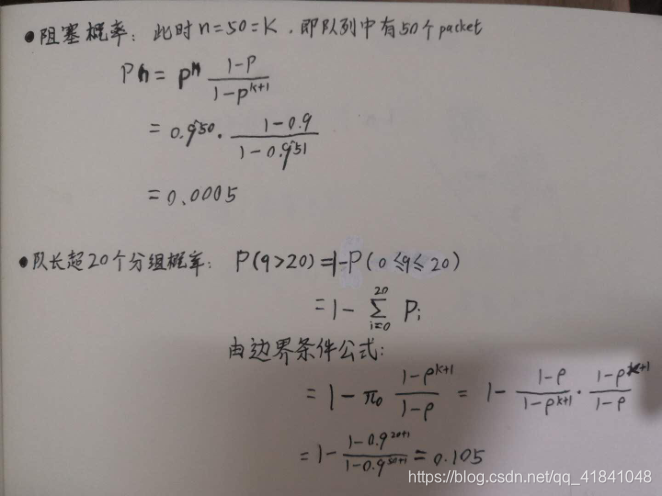 ●阻塞概率：此时n=50=K，即队列中有50个packet
Pn = ρ^n (1-ρ)/(1-ρ^(k+1))
= 0.9^50 · (1-0.9)/(1-0.9^51)
= 0.0005
●队长超20个分组概率：P(q>20)=1-P(0≤q≤20)
= 1- ∑_{i=0}^{20} Pi
由边界条件公式：
= 1-π0 (1-ρ^(k+1))/(1-ρ) = 1- (1-ρ)/(1-ρ^(k+1)) · (1-ρ^(k+1))/(1-ρ)
= 1- (1-0.9^(20+1))/(1-0.9^(50+1)) = 0.105
https://blog.csdn.net/qq_41841048